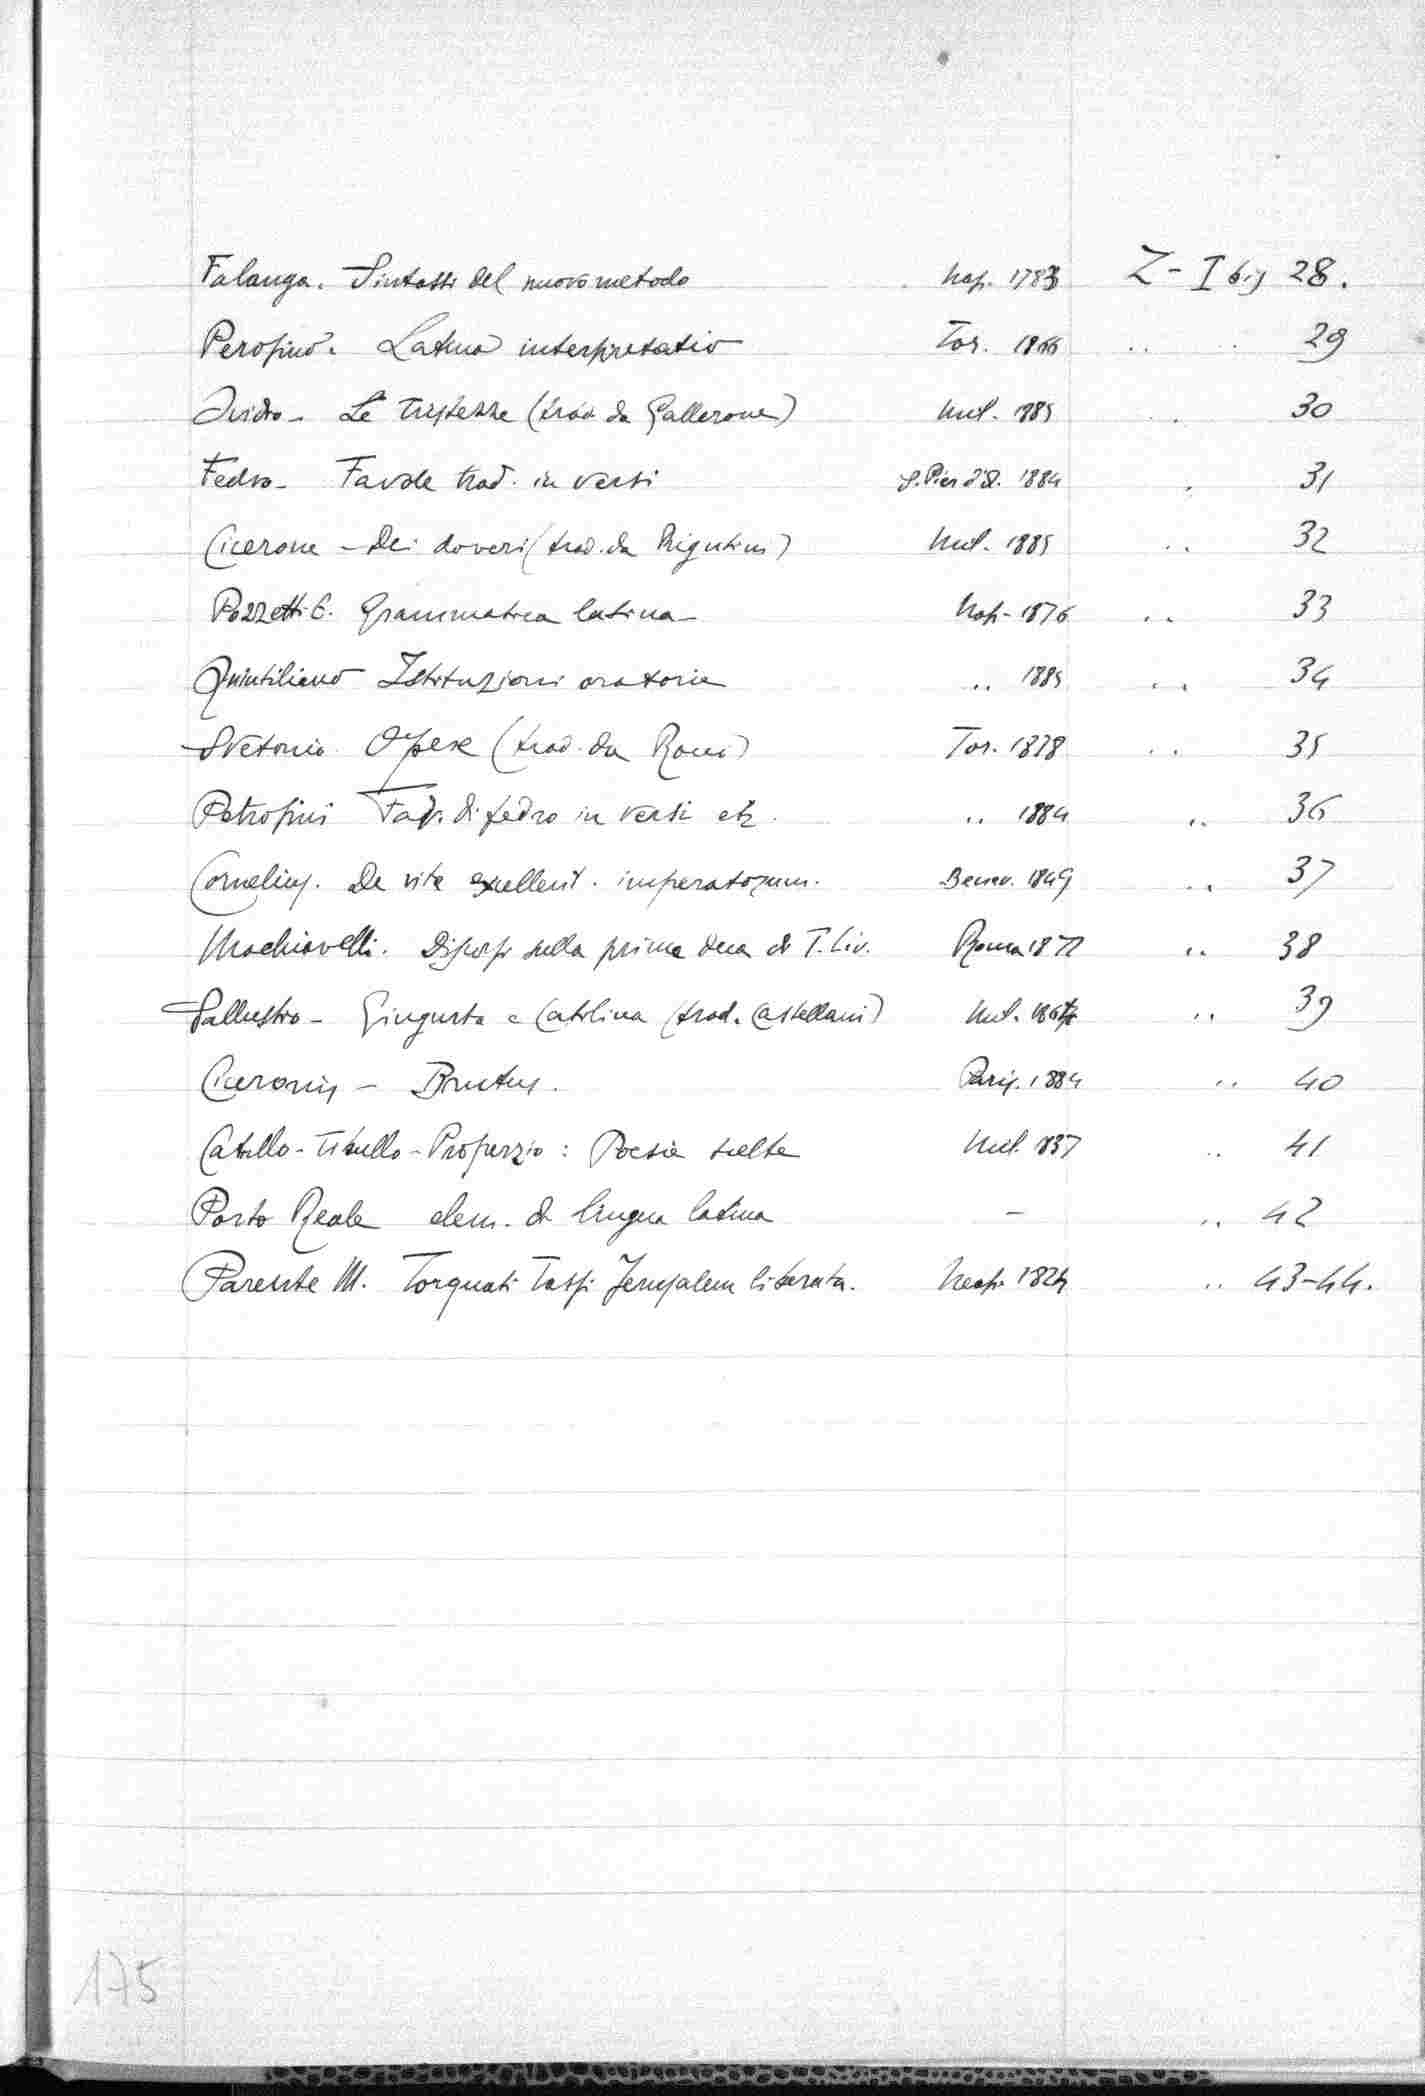 Falanga. Sintassi del nuovo metodo Nap. 1783 Z - I bis 28.
Perosino. Latina interpretatio Tor. 1866 " " 29
Ovidio - Le Tristezze (trad. da Gallerone) Mil. 1885 " 30
Fedro - Favole trad. in versi S. Pier d'A. 1884 " 31
Cicerone - Dei doveri (trad. da Rigutini) Mil. 1885 " 32
Pozzetti C. Grammatica latina - Nap. 1876 " 33
Quintiliano Istituzioni oratorie " 1885 " 34
Svetonio. Opere (trad. da Rossi) Tor. 1878 " 35
Petrosini Fav. di fedro in versi etc. " 1884 " 36
Cornelius. De vita excellent. imperatorum. Benev. 1849 " 37
Machiavelli. Discorsi sulla prima deca di T. Liv. Roma 1877 " 38
Sallustio - Giugurta e Catilina (trad. Castellani) Mil. " 39
Ciceronis - Brutus. Paris. 1884 " 40
Catullo - Tibullo - Properzio : Poesie scelte Mil. 1837 " 41
Porto Reale elem. di lingua latina - " 42
Parente M. Torquati Tassi Jerusalem liberata. Neap. 1824 " 43-44.
175